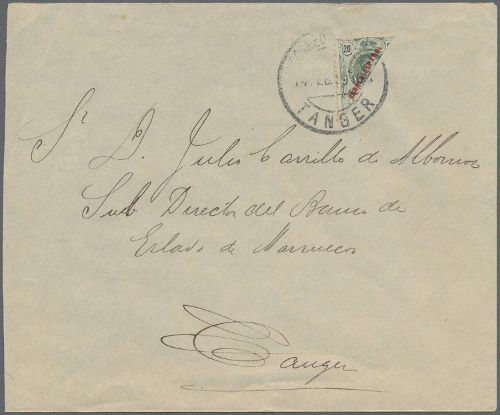 CORREO
20
MARRUECOS
14 FEB.
TANGER
Sr. D. Julio Carrillo de Albornoz
Sub Director del Banco de
Estado de Marruecos
Tanger